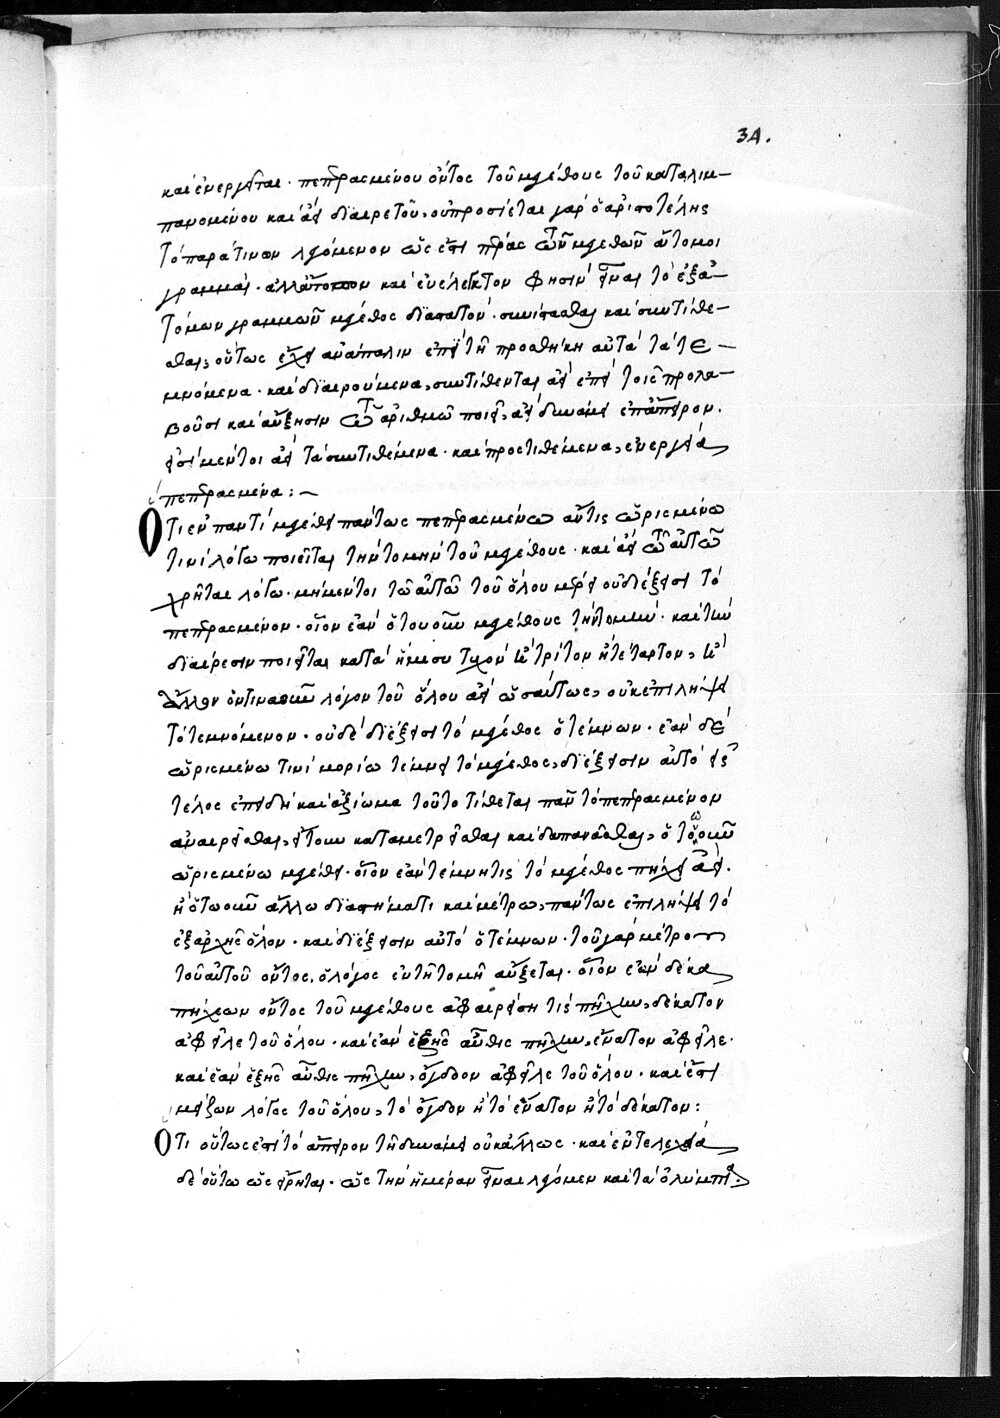 34.
καὶ ἐνεργεῖται · πεπερασμένου ὄντος τοῦ μεγέθους τοῦ καταλιμ-
πανομένου καὶ ἀεὶ διαιρετοῦ, οὐ προσίεται γὰρ ὁ ἀριστοτέλης
τὸ παρά τινων λεγόμενον ὡς ἐστὶ πέρας τῶν μεγεθῶν ἄτομοι
γραμμαὶ · ἀλλ' ἄτοπον καὶ εὐέλεγκτον φησὶν εἶναι τὸ ἐξ ἀ-
τόμων γραμμῶν μέγεθος διαστατὸν συνίστασθαι καὶ συντίθε-
σθαι, οὕτως ἔχει ἀνάπαλιν ἐπὶ τῇ προσθήκῃ αὐτὰ τὰ τε-
μνόμενα · καὶ διαιρούμενα, συντίθενται ἀεὶ ἐπὶ τοῖς προλα-
βοῦσι καὶ αὔξησιν τῷ ἀριθμῷ ποιεῖ, ἀεὶ δυνάμει ἐπ' ἄπειρον.
εἰσὶ μέντοι ἀεὶ τὰ συντιθέμενα · καὶ προστιθέμενα, ἐνεργείᾳ
πεπερασμένα : ~
Ὅτι ἐν παντὶ μεγέθει πάντως πεπερασμένω ἄν τις ὡρισμένω
τινὶ λόγω ποιεῖται τὴν τομὴν τοῦ μεγέθους · καὶ ἀεὶ τῷ αὐτῷ
χρῆται λόγω · μὴ μέντοι τῷ αὐτῷ τοῦ ὅλου μέρει οὐ διέξεισι τὸ
πεπερασμένον · οἷον ἐὰν ὁτουοῦν μεγέθους τὴν τομὴν · καὶ τὴν
διαίρεσιν ποιεῖται κατὰ ἥμισυ τυχὸν ἢ τρίτον ἢ τέταρτον, ἢ
ἄλλον ὁντιναοῦν λόγον τοῦ ὅλου ἀεὶ ὡσαύτως, οὐκ ἐπιλείψει
τὸ τεμνόμενον · οὐδὲ διέξεισι τὸ μέγεθος ὁ τέμνων · ἐὰν δὲ
ὡρισμένω τινὶ μορίω τέμνει τὸ μέγεθος, διέξεισιν αὐτὸ εἰς
τέλος ἐπειδὴ καὶ ἀξίωμα τοῦτο τίθεται πᾶν τὸ πεπερασμένον
ἀναιρεῖσθαι, ἤτοι καταμετρεῖσθαι καὶ δαπανᾶσθαι, ὁτωοῦν
ὡρισμένω μεγέθει · οἷον ἐὰν τέμνη τις τὸ μέγεθος πήχει ἀεί.
ἢ ὁτωοῦν ἄλλω διαστήματι καὶ μέτρω, πάντως ἐπιλείψει τὸ
ἐξαρχῆς ὅλον · καὶ διέξεισιν αὐτὸ ὁ τέμνων · τοῦ γὰρ μέτρου
τοῦ αὐτοῦ ὄντος, ὁ λόγος ἐν τῇ τομῇ αὔξεται · οἷον ἐὰν δέκα
πήχεων ὄντος τοῦ μεγέθους ἀφαιρήση τις πῆχυν, δέκατον
ἀφεῖλε τοῦ ὅλου · καὶ ἐὰν ἑξῆς αὖθις πῆχυν, ἔνατον ἀφεῖλε ·
καὶ ἐὰν ἑξῆς αὖθις πῆχυν, ὄγδοον ἀφεῖλε τοῦ ὅλου · καὶ ἐστὶ
μείζων λόγος τοῦ ὅλου, τὸ ὄγδοον ἢ τὸ ἔνατον ἢ τὸ δέκατον :
Ὅτι οὕτως ἐστὶ τὸ ἄπειρον τῇ δυνάμει οὐκ ἄλλως · καὶ ἐντελεχείᾳ
δὲ οὕτω ὡς εἴρηται · ὡς τὴν ἡμέραν εἶναι λέγομεν καὶ τὰ ὀλύμπια,